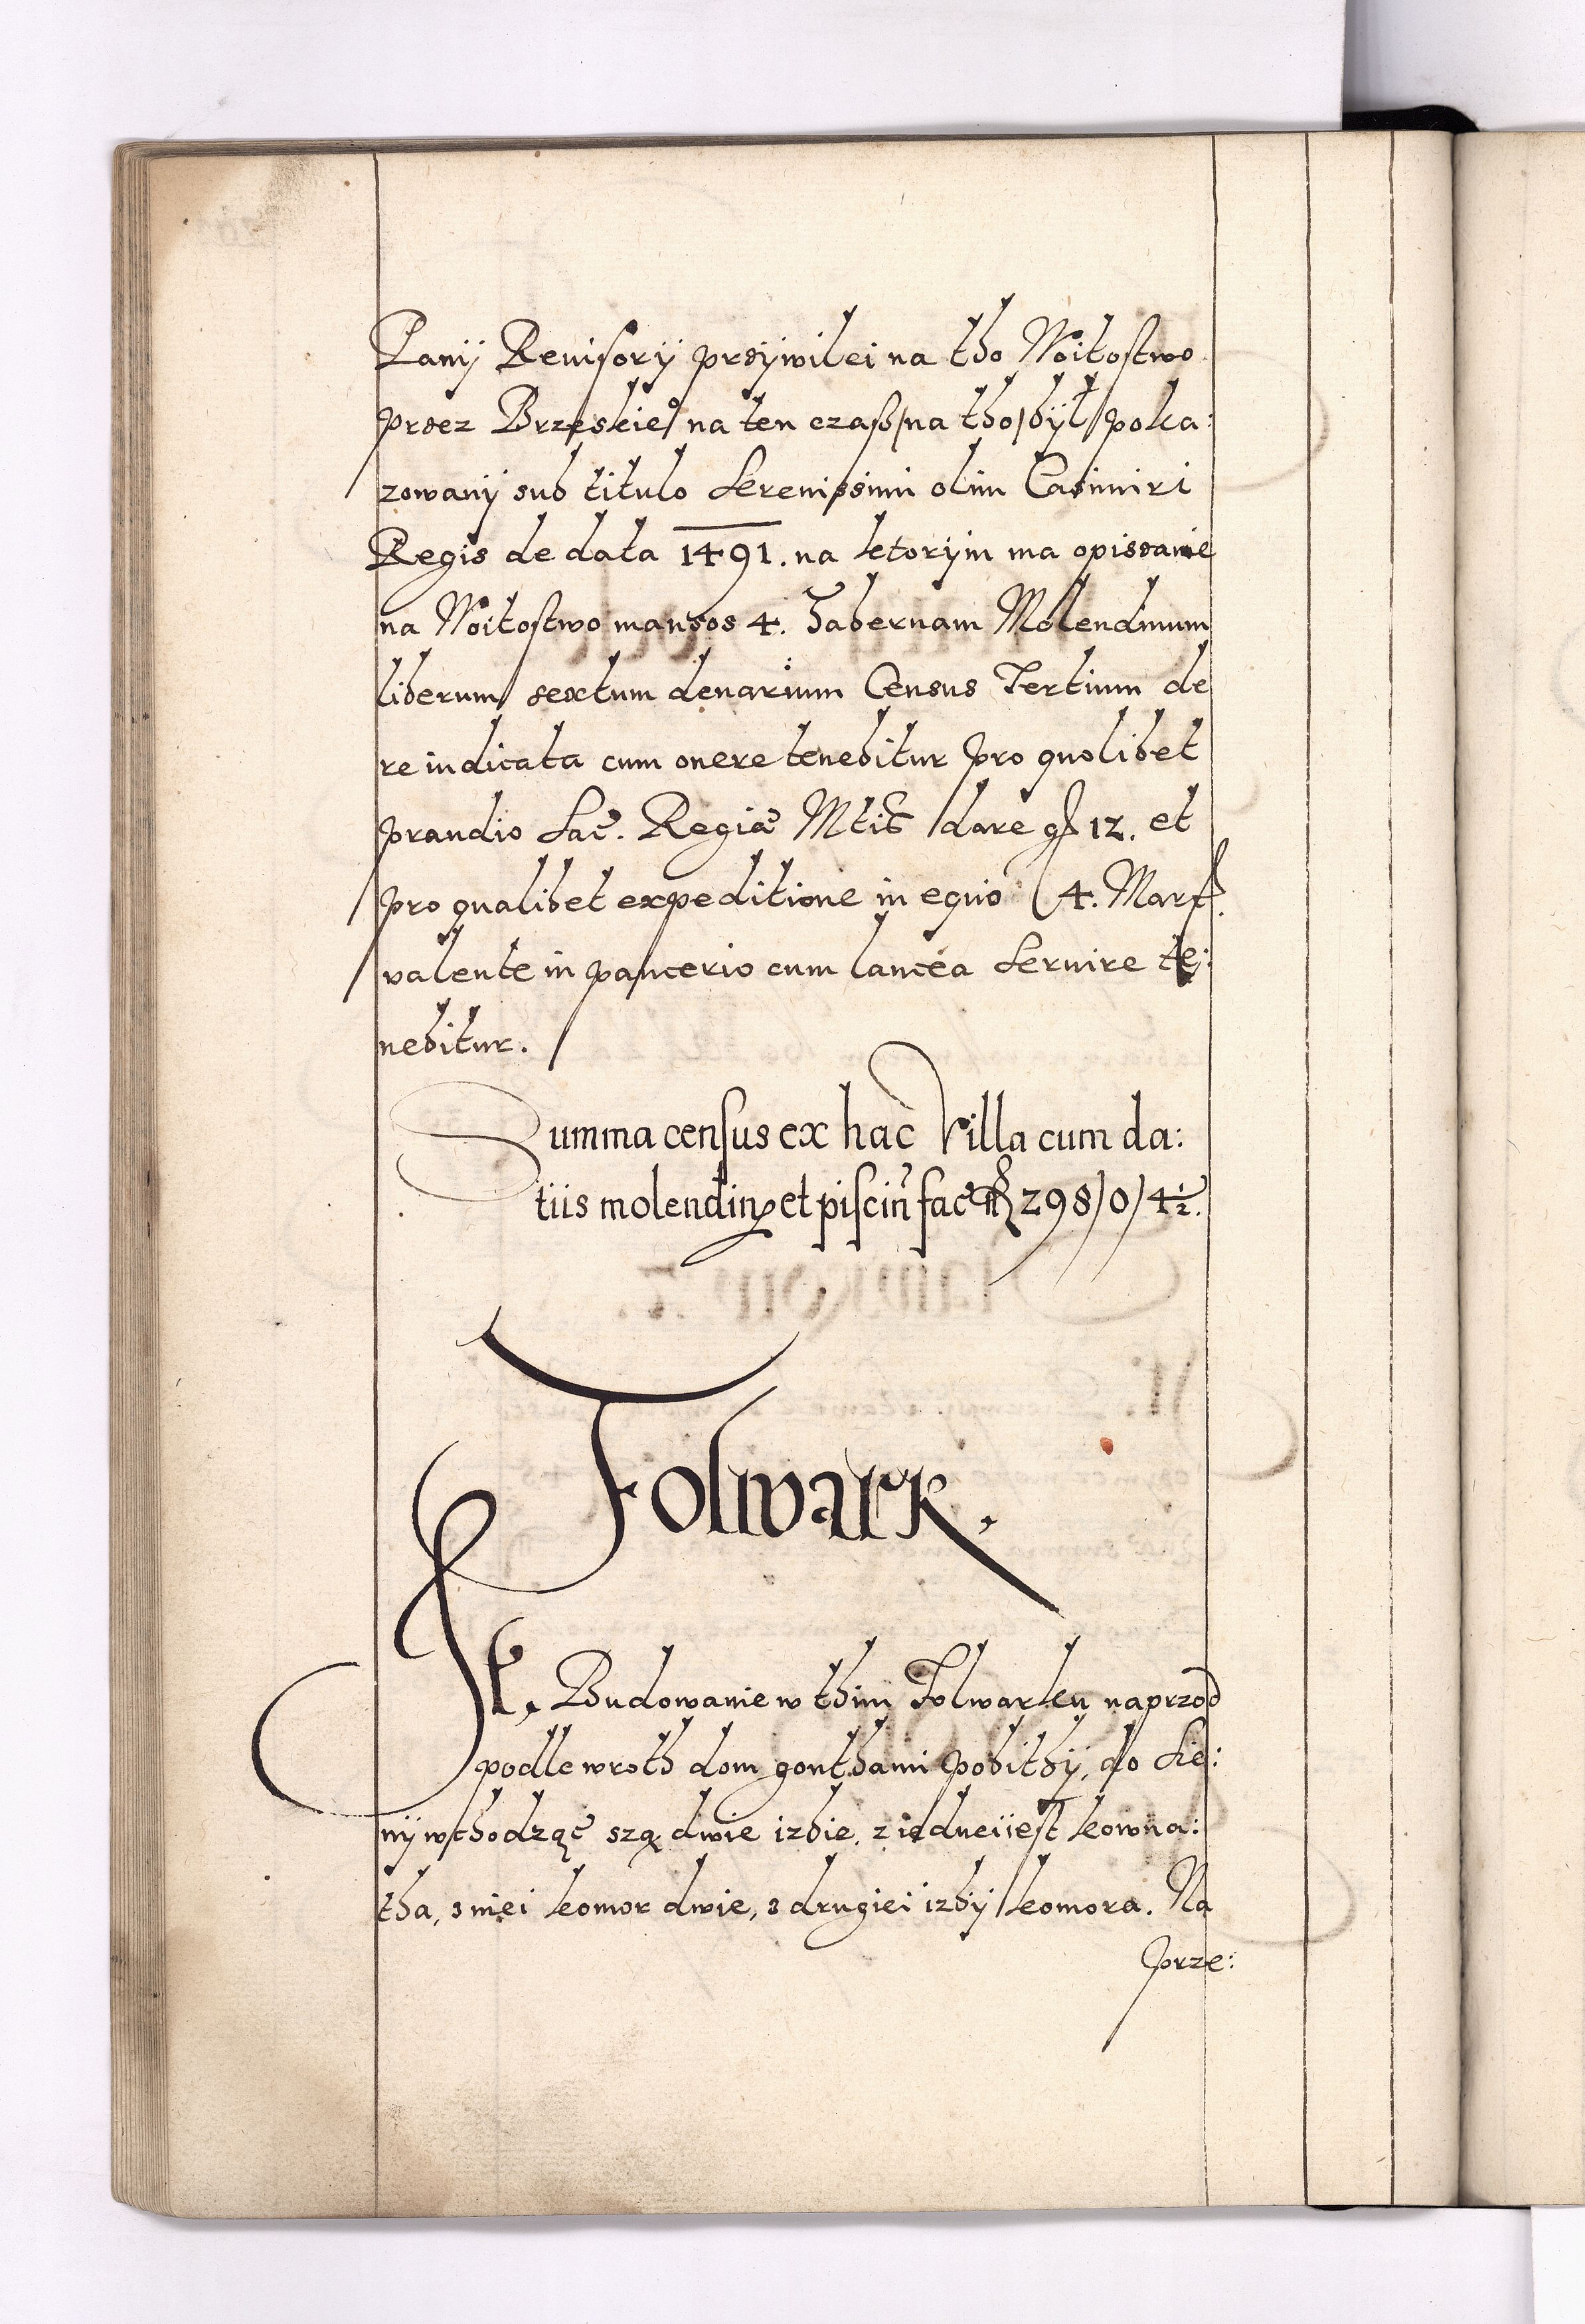 Panÿ Reuisorÿ przÿwilei na tho Woitostwo
przez Brzeskie⁰ na ten czasz na tho bÿł poka:
zowanÿ sub titulo Serenissimi olim Casimiri
Regis de data 1491. na ktorÿm ma opissanie
na Woitostwo mansos 4. Tabernam Molendinum
liberum sextum denarium Census Tertium de
re iudicata cum onere tenebitur pro quolibet
prandio Sac. Regiæ Mtis dare gr 12. et
pro qualibet expeditione in equo 4. Marc.
valente in pancerio cum lancea Seruire te:
nebitur.
Summa census ex hac Villa cum da:
tiis molendin et piscin fac 298/0/4½.
Folwark.
It. Budowanie w thim Folwarku naprzod
podle wroth dom gonthami pobithÿ, do Sie:
nÿ wchodząc szą dwie izbie, z iednei iest komna:
tha, z niei komor dwie, z drugiei izbÿ komora. Na
prze: